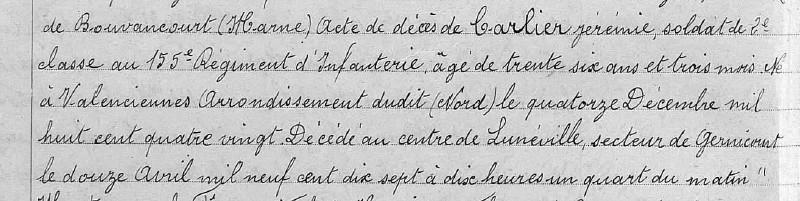 de Bouvancourt (Marne) Acte de décès de Carlier Jérémie, soldat de 2e
classe au 155e Régiment d'Infanterie, âgé de trente six ans et trois mois Né
à Valenciennes Arrondissement dudit (Nord) le quatorze Décembre mil
huit cent quatre vingt Décédé au centre de Lunéville, secteur de Gernicourt
le douze Avril mil neuf cent dix sept à dix heures un quart du matin "